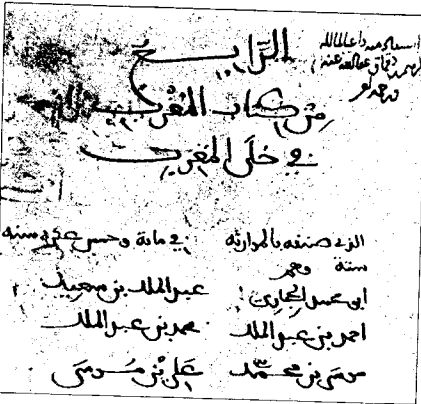 الرابع
من كتاب المغرب الذي
في حلى المغرب
الذي صنفه بالموارثة في مائة وخمس عشرة سنة
ستة وهم
ابو محمد الحجاري عبد الملك بن سعيد
احمد بن عبد الملك محمد بن عبد الملك
موسى بن محمد علي بن موسى